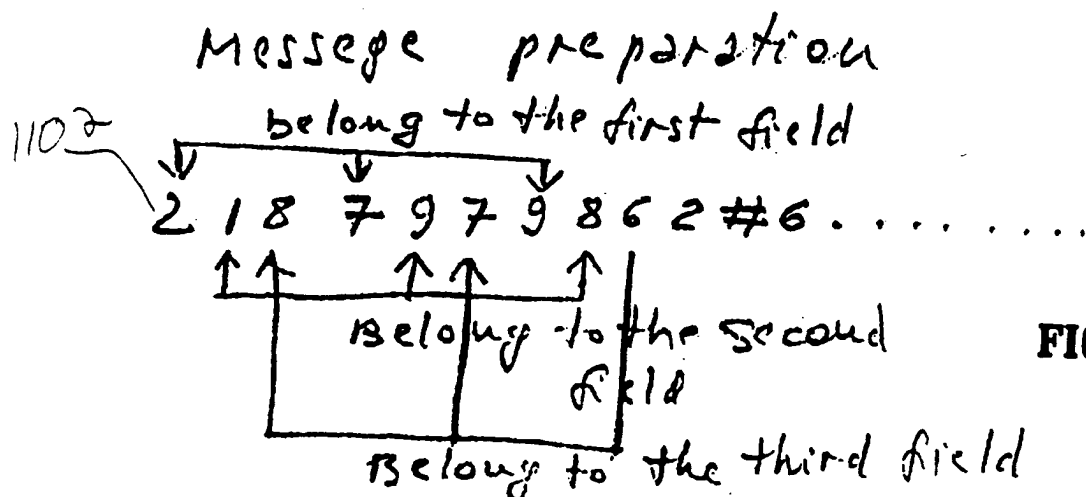 Messege preparation
belong to the first field
110
2 1 8 7 9 7 9 8 6 2 # 6 . . . . . . . . .
Belong to the second
field
FI
Belong to the third field